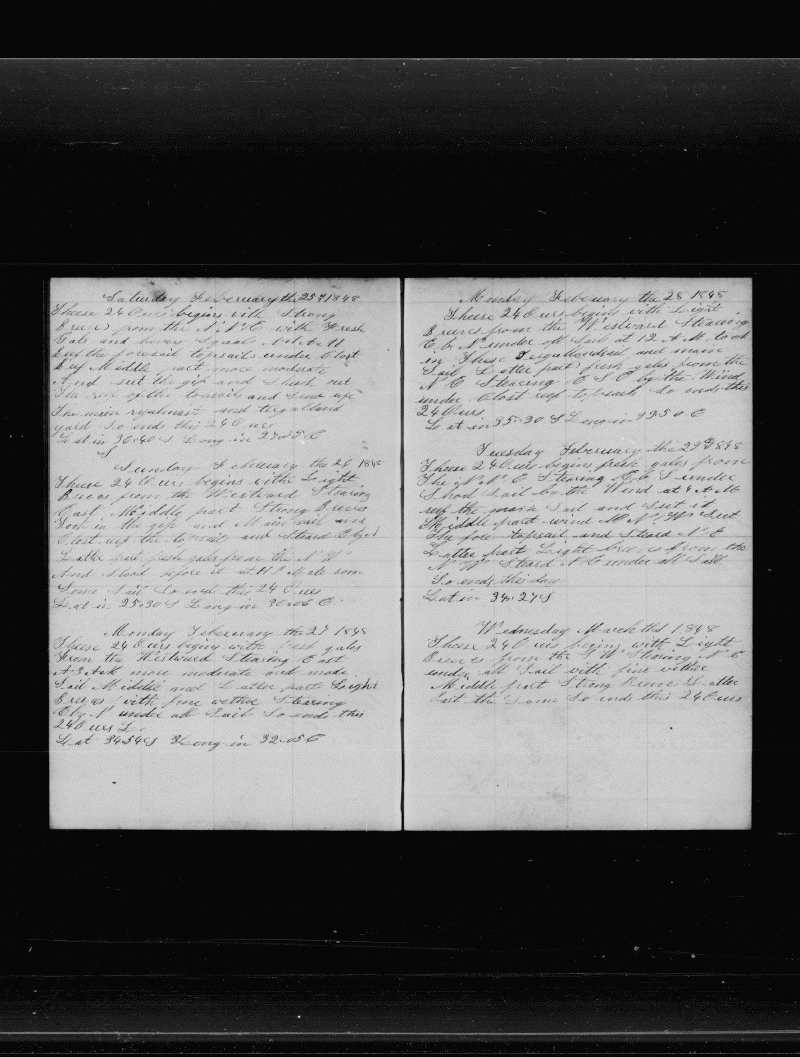 Saturday February the 25th 1848
These 24 Ours begins with Strong
Breues from the N.N.E with Fresh
Gals and hevey Squal At 4 A.M
Reef the foresail topsails under Clost
Reef Middle part more moderate
And set the gib and Shook out
The reef of the topsails and Send up
The main royalmast and tregalland
yard So ends this 24 Ours
Lat in 36.40 S Long in 27.25 E
Sunday February the 26 1848
These 24 Ours begins with Light
Breeues from the Westward Stearing
East Middle part Strong Breeues
Took in the gib and Mainsail and
Clost reef the topsails and Steard E by N
Latter part fresh gales from the N W
And Stood before it at
Some Sail So end this 24 Ours
Lat in 35.30 S Long in 30.06 E
Monday February the 27 1848
These 24 Ours begins with fresh gales
From the Westward Stearing East
At 3 A.M more moderate and made
Sail Middle and Latter part Light
Breeues with fine wether Stearing
E by N under all Sail So ends this
24 Ours
Lat 34.54 S Long in 32.05 E
Monday February the 28 1848
These 24 Ours begins with Light
Breeues from the Westward Stearing
E by N under all Sail at 12 A.M. took
in These Tregallandsail and main
Sail Latter part fresh gales from the
N E Stearing E S E by the Wind
under Clost reef topsails So ends this
24 Ours
Lat in 35.30 S Long in 33.50 E
Tuesday February the 29th 1848
These 24 Ours begins fresh gales from
The N.N.E Stearing E by S under
Short Sail by the Wind at 4 A.M
reef the main Sail and Set it
Middle part wind N.N.W. Set
The fore topsail and Steard N E
Latter part Light breeues from the
N W Steard N E under all Sail
So ends this day
Lat in 34.27 S
Wednesday March the 1 1848
These 24 Ours begins with Light
Breeues from the N W Stearing N E
under all Sail with fine wether
Middle part Strong Breeues Latter
Part the Same So ends this 24 Ours